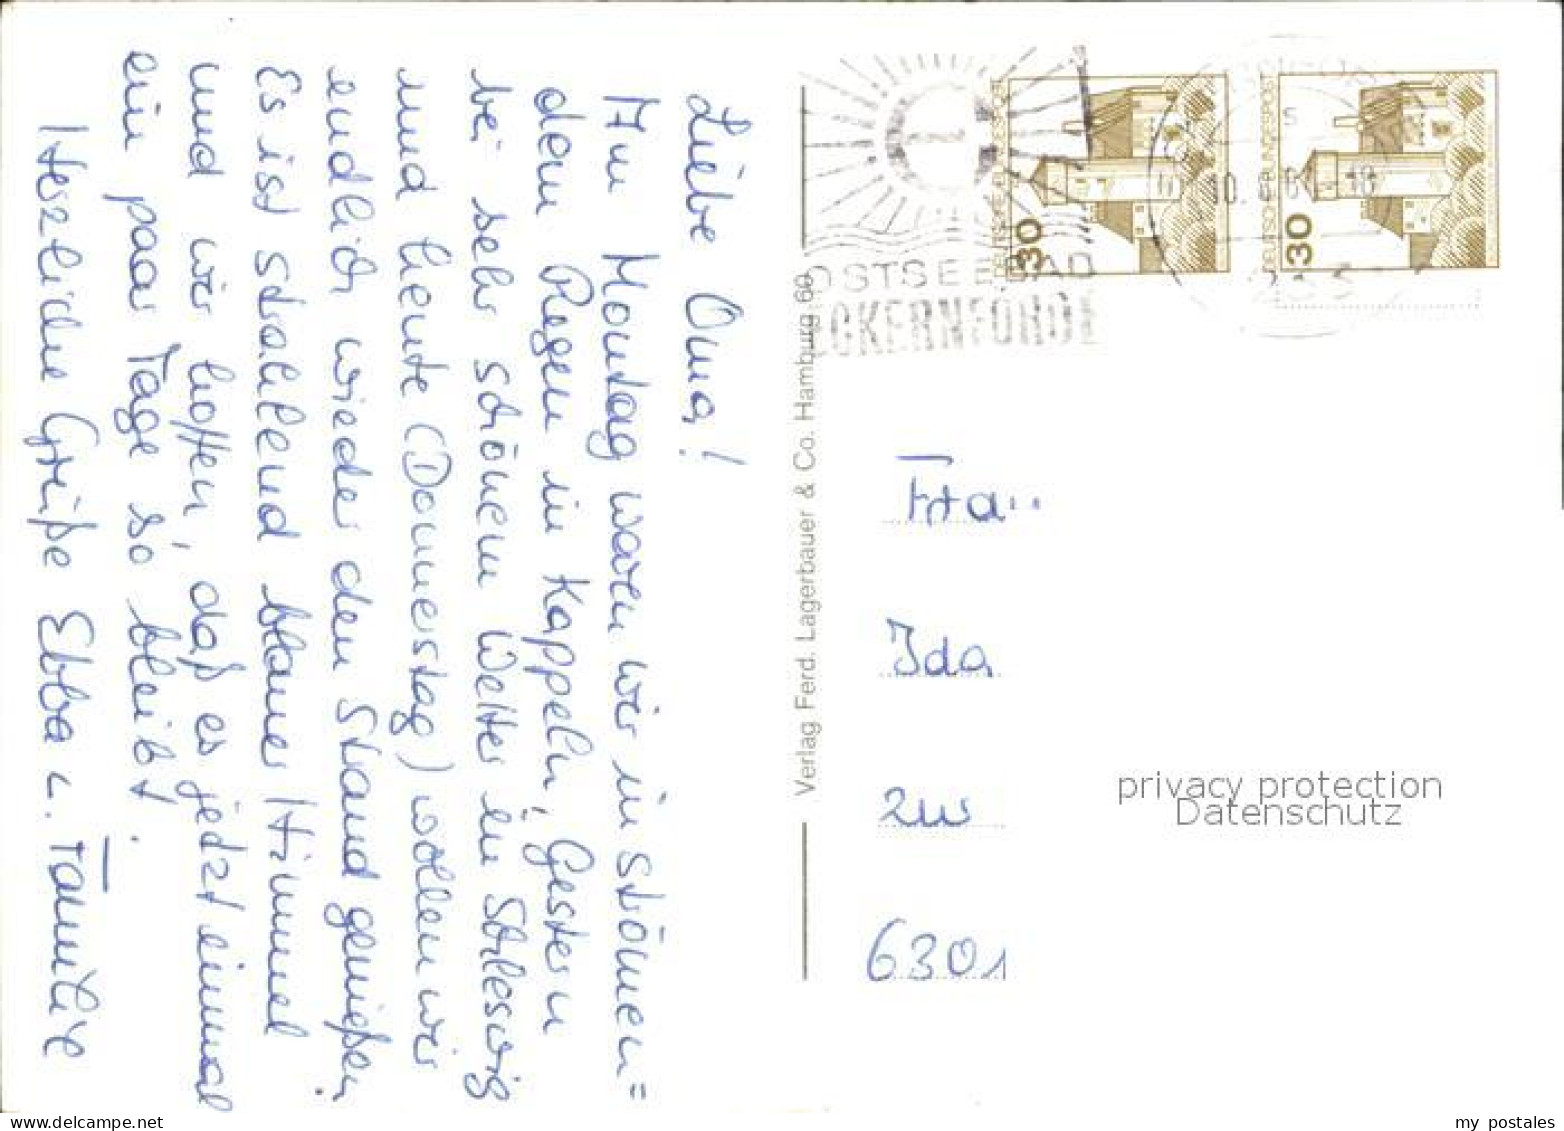 Liebe Oma!
Am Montag waren wir in strömen=
dem Regen in Kappeln, Gestern
bei sehr schönem Wetter in Schleswig
und heute (Donnerstag) wollen wir
endlich wieder den Strand genießen.
Es ist strahlend blauer Himmel
und wir hoffen, daß es jetzt einmal
ein paar Tage so bleibt.
Herzliche Grüße Ebba u. Familie
Verlag Ferd. Lagerbauer & Co. Hamburg 60
OSTSEEBAD
ECKERNFÖRDE
DEUTSCHE BUNDESPOST
30
DEUTSCHE BUNDESPOST
30
Frau
Ida
6301
privacy protection
Datenschutz
www.delcampe.net
my_postales